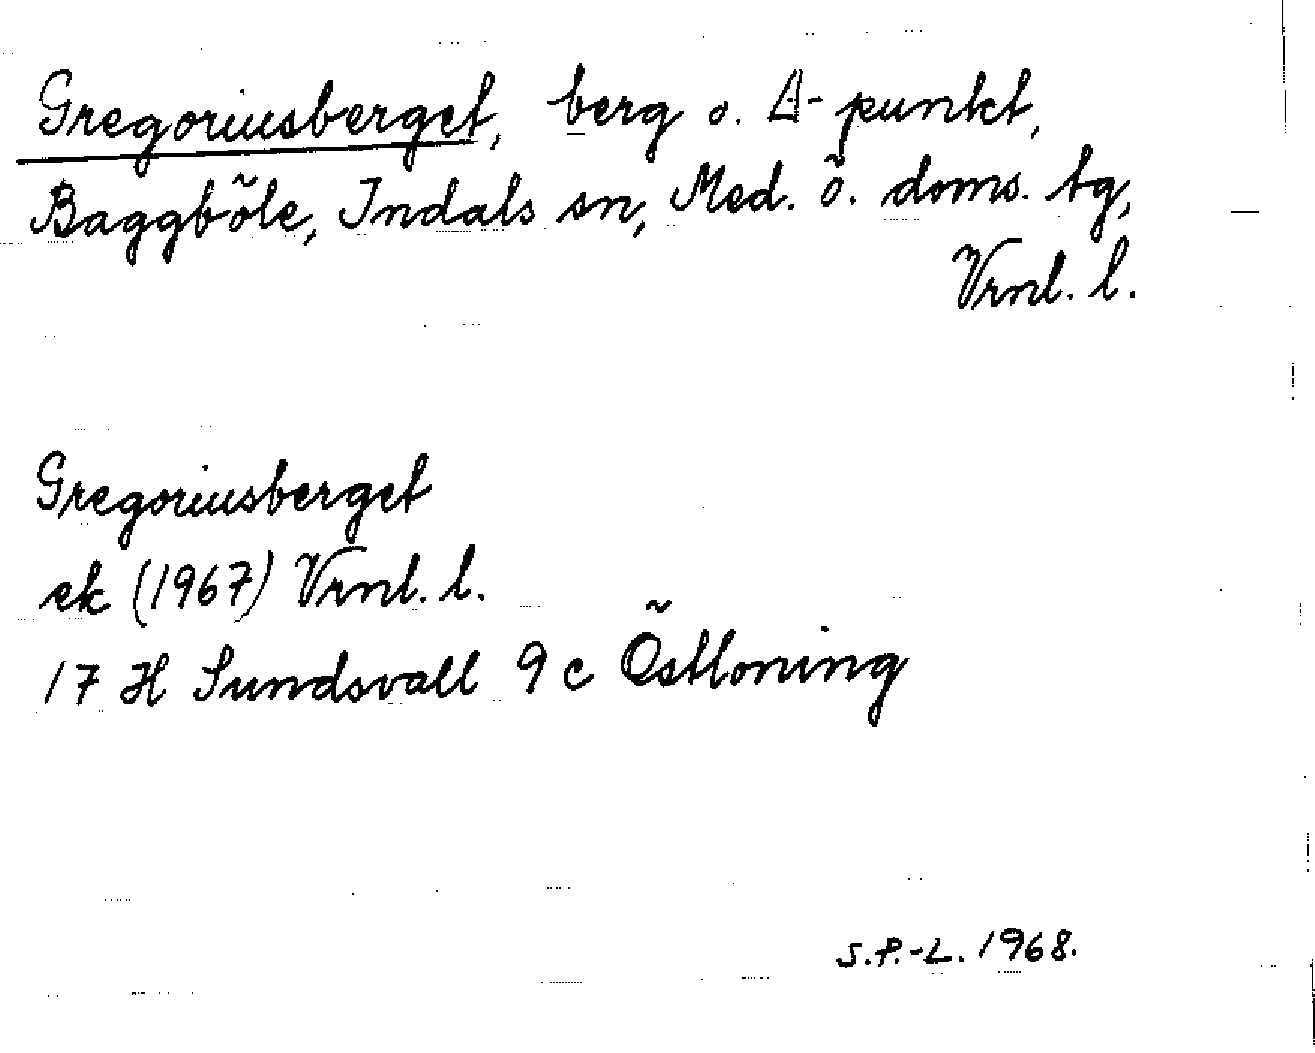 Gregoriusberget, berg o. Δ-punkt,
Baggböle, Indals sn, Med. ö. doms. tg,
Vrnl. l.
Gregoriusberget
ek (1967) Vrnl. l.
17 H Sundsvall 9 c Östloning
S.P.-L. 1968.